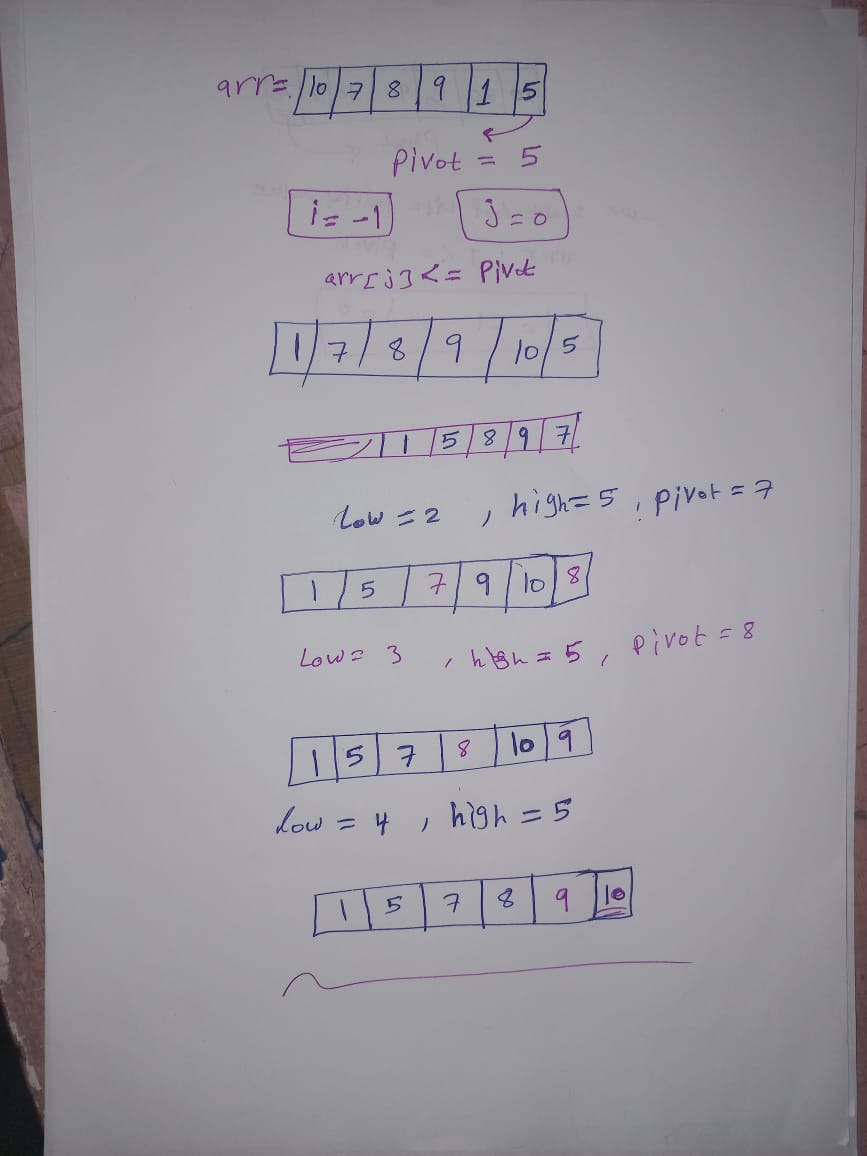 arr= 10 7 8 9 1 5
Pivot = 5
i = -1 j = 0
arr[j] <= Pivot
1 7 8 9 10 5
1 5 8 9 7
Low = 2 , high = 5 , pivot = 7
1 5 7 9 10 8
Low = 3 , high = 5 , pivot = 8
1 5 7 8 10 9
Low = 4 , high = 5
1 5 7 8 9 10